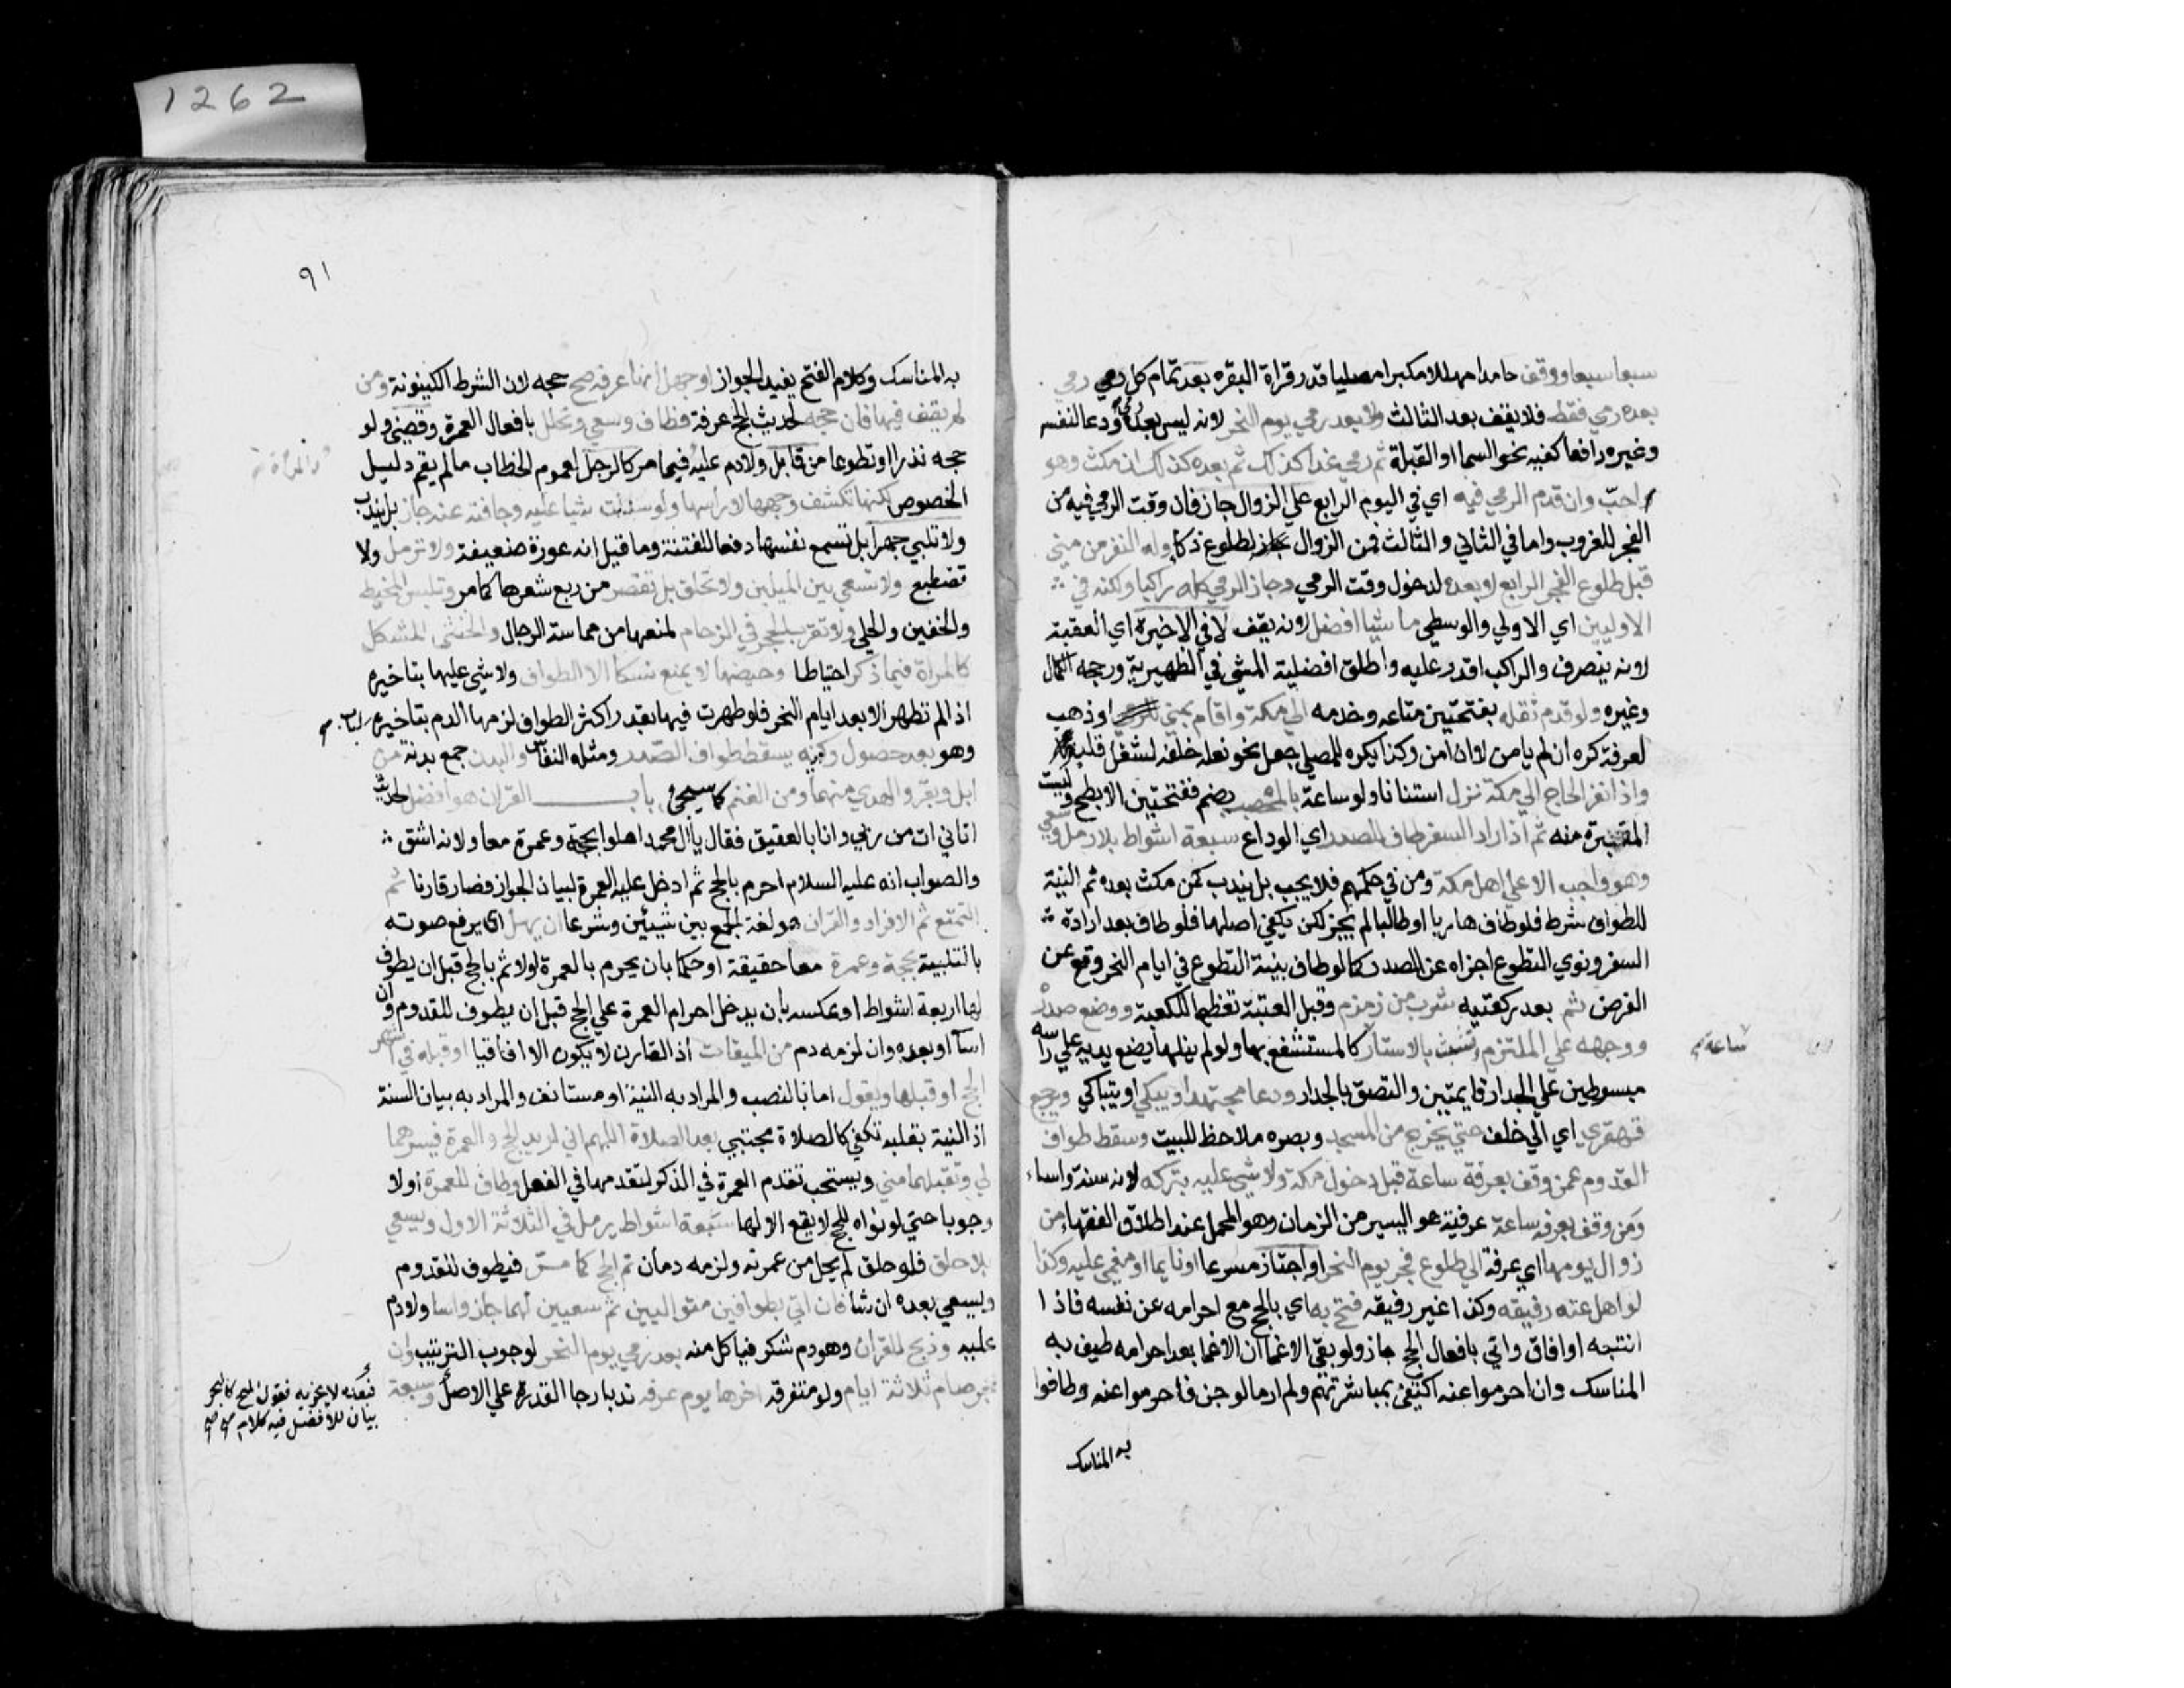 1262
سبعا سبعا ووقف حامدا مهللا مكبرا مصليا قدر قراة البقره بعد تمام كل رمي رمي
بعده رمي فقط فلا يقف بعد الثالث ولا بعد رمي يوم النحر لانه ليس بعده رمي ودعا لنفسه
وغيره رافعا كفيه نحو السما او القبلة ثم رمي غدا كذلك ثم بعده كذلك ان مكث وهو
احبّ وان قدم الرمي فيه اي في اليوم الرابع علي الزوال جاز فان وقت الرمي فيه من
الفجر للغروب واما في الثاني والثالث فمن الزوال لطلوع ذكا وله النفر من مني
قبل طلوع الفجر الرابع لا بعده لدخول وقت الرمي وجاز الرمي كله راكبا ولكنه في
الاوليين اي الاولي والوسطي ماشيا افضل لانه يقف لا في الاخيرة اي العقبة
لانه ينصرف والراكب اقدر عليه واطلق افضلية المشي في الظهيرية ورجحه الكمال
وغيره ولو قدم ثقله بفتحتين متاعه وخدمه الي مكة واقام بمني او ذهب
لعرفة كره ان لم يامن لا ان امن وكذا يكره للمصلي جعل نحو نعله خلفه لشغل قلبه
واذا نفر الحاج الي مكة نزل استنانا ولو ساعة بالمحصب بضم ففتحتين الابطح وليست
المقبرة منه ثم اذا اراد السفر طاف للصدر اي الوداع سبعة اشواط بلا رمل وسعي
وهو واجب الا علي اهل مكة ومن في حكمهم فلا يجب بل يندب كمن مكث بعده ثم النية
للطواف شرط فلو طاف هاربا او طالبا لم يجز لكن يكفي اصلها فلو طاف بعد ارادة
السفر ونوي التطوع اجزاه عن الصدر كما لو طاف بنية التطوع في ايام النحر وقع عن
الفرض ثم بعد ركعتيه شرب من زمزم وقبل العتبة تعظيما للكعبة ووضع صدره
ووجهه علي الملتزم وتشبث بالاستار ساعة كالمستشفع بها ولو لم ينلها يضع يديه علي راسه
مبسوطتين علي الجدار قايمتين والتصق بالجدار ودعا مجتهدا ويبكي او يتباكي ويرجع
قهقري اي الي خلف حتي يخرج من المسجد وبصره ملاحظ للبيت وسقط طواف
القدوم عمن وقف بعرفة ساعة قبل دخول مكة ولا شي عليه بتركه لانه سنة واساء
ومن وقف بعرفه ساعة عرفية هو اليسير من الزمان وهو المحمل عند اطلاق الفقهاء من
زوال يومها اي عرفة الي طلوع فجر يوم النحر او اجتاز مسرعا او نايما او مغمي عليه وكذا
لو اهل عنه رفيقه وكذا غير رفيقه فتح به اي بالحج مع احرامه عن نفسه فاذا
انتبه او افاق واتي بافعال الحج جاز ولو بقي الاغما ان الاغما بعد احرامه طيف به
المناسك وان احرموا عنه اكتفي بمباشرتهم ولم ار ما لو جن فاحرموا عنه وطافوا
به المناسك
٩١
به المناسك وكلام الفتح يفيد الجواز او جهل انها عرفه صح حجه لان الشرط الكينونة ومن
لم يقف فيها فات حجه لحديث الحج عرفة فطاف وسعي وتحلل بافعال العمرة وقضي ولو
حجه نذرا او تطوعا من قابل ولا دم عليه والمراة فيما مر كالرجل لعموم الخطاب ما لم يقم دليل
الخصوص لكنها تكشف وجهها لا راسها ولو سدلت شيا عليه وجافته عنه جاز بل يندب
ولا تلبي جهرا بل تسمع نفسها دفعا للفتنة وما قيل انه عورة ضعيفة ولا ترمل ولا
تضطبع ولا تسعي بين الميلين ولا تحلق بل تقصر من ربع شعرها كما مر وتلبس المخيط
والخفين والحلي ولا تقرب الحجر في الزحام لمنعها من مماسة الرجال والخنثي المشكل
كالمراة فيما ذكر احتياطا وحيضها لا يمنع نسكا الا الطواف ولا شي عليها بتاخيره
اذا لم تطهر الا بعد ايام النحر فلو طهرت فيها بقدر اكثر الطواف لزمها الدم بتاخيره
وهو بعد حصول ركنيه يسقط طواف الصدر ومثله النفاس والبدن جمع بدنة من
ابل وبقر والهدي منهما ومن الغنم كما سيجئ باب القران هو افضل لحديث
اتاني ات من ربي وانا بالعقيق فقال يا آل محمد اهلوا بحجة وعمرة معا ولانه اشق
والصواب انه عليه السلام احرم بالحج ثم ادخل عليه العمرة لبيان الجواز فصار قارنا ثم
التمتع ثم الافراد والقران هو لغة الجمع بين شيئين وشرعا ان يهل اي يرفع صوته
بالتلبية بحجة وعمرة معا حقيقة او حكما بان يحرم بالعمرة اولا ثم بالحج قبل ان يطوف
لها اربعة اشواط او عكسه بان يدخل احرام العمرة علي الحج قبل ان يطوف للقدوم وان
اسآ او بعده وان لزمه دم من الميقات اذ القارن لا يكون الا افاقيا او قبله في اشهر
الحج او قبلها ويقول اما بالنصب والمراد به النية او مستانف والمراد به بيان السنة
اذ النية بقلبه تكفي كالصلاة مجتبي بعد الصلاة اللهم اني اريد الحج والعمرة فيسرهما
لي وتقبلهما مني ويستحب تقدم العمرة في الذكر لتقدمها في الفعل وطاف للعمرة اولا
وجوبا حتي لو نواه للحج لا يقع الا لها سبعة اشواط يرمل في الثلاثة الاول ويسعي
بلا حلق فلو حلق لم يحل من عمرته ولزمه دمان ثم يحج كما مرّ فيطوف للقدوم
ويسعي بعده ان شا فان اتي بطوافين متواليين ثم سعيين لهما جاز واسا ولا دم
عليه وذبح للقران وهو دم شكر فياكل منه بعد رمي يوم النحر لوجوب الترتيب وان
عجز صام ثلاثة ايام ولو متفرقة اخرها يوم عرفه ندبا رجا القدرة علي الاصل وسبعة
بيان للافضل فيه كلام